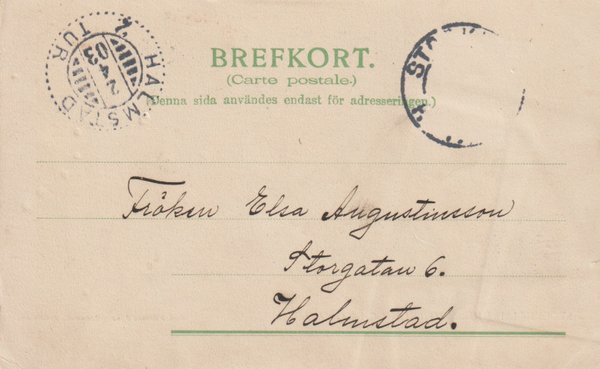 BREFKORT.
(Carte postale.)
(Denna sida användes endast för adresseringen.)
HALMSTAD
TUR
24
03
Fröken Elsa Augustinsson
Storgatan 6.
Halmstad.